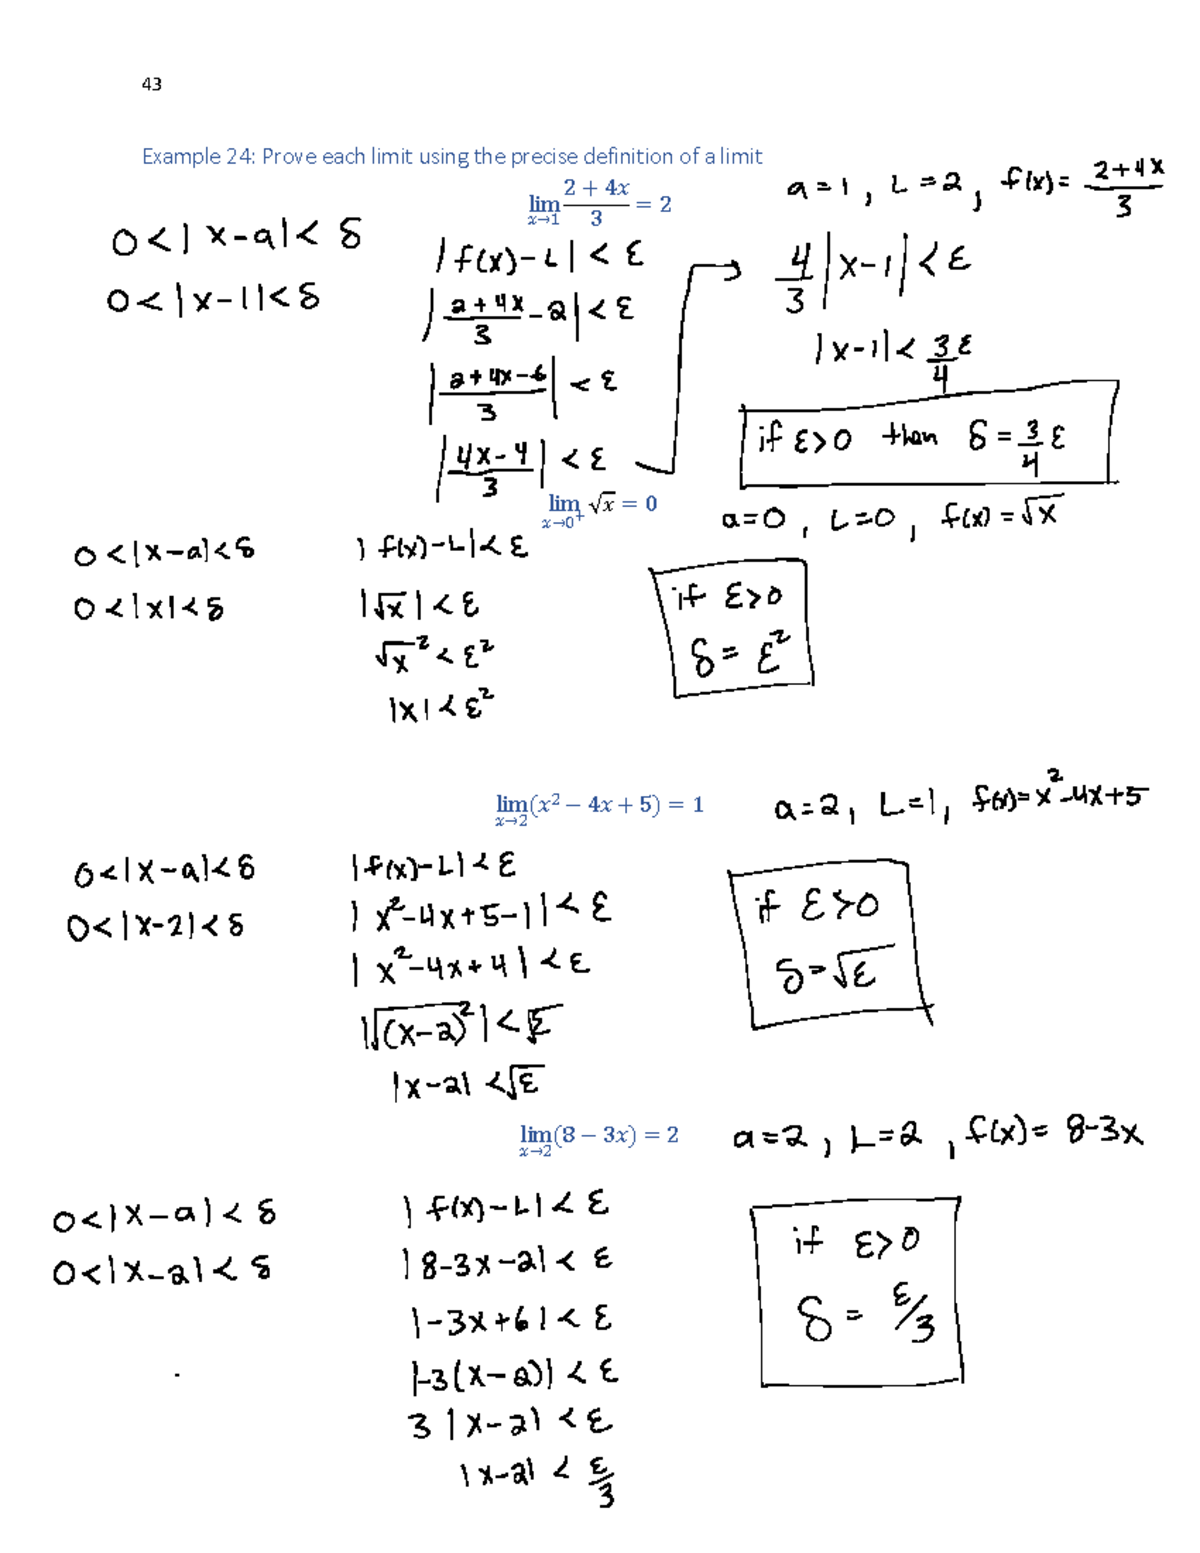 43
Example 24: Prove each limit using the precise definition of a limit
lim x→1 (2 + 4x)/3 = 2
a=1, L=2, f(x)= (2+4x)/3
0<|x-a|<δ
0<|x-1|<δ
|f(x)-L|<ε
|(2+4x)/3 - 2|<ε
|(2+4x-6)/3|<ε
|(4x-4)/3|<ε
4/3 |x-1|<ε
|x-1|< 3ε/4
if ε>0 then δ = 3/4 ε
lim x→0⁺ √x = 0
a=0, L=0, f(x)=√x
0<|x-a|<δ
0<|x|<δ
|f(x)-L|<ε
|√x|<ε
√x² < ε²
|x|<ε²
if ε>0
δ= ε²
lim x→2 (x² − 4x + 5) = 1
a=2, L=1, f(x)=x²-4x+5
0<|x-a|<δ
0<|x-2|<δ
|f(x)-L|<ε
|x²-4x+5-1|<ε
|x²-4x+4|<ε
|√(x-2)²|<√ε
|x-2|<√ε
if ε>0
δ=√ε
lim x→2 (8 − 3x) = 2
a=2, L=2, f(x)= 8-3x
0<|x-a|<δ
0<|x-2|<δ
|f(x)-L|<ε
|8-3x-2|<ε
|-3x+6|<ε
|-3(x-2)|<ε
3|x-2|<ε
|x-2|< ε/3
if ε>0
δ = ε/3